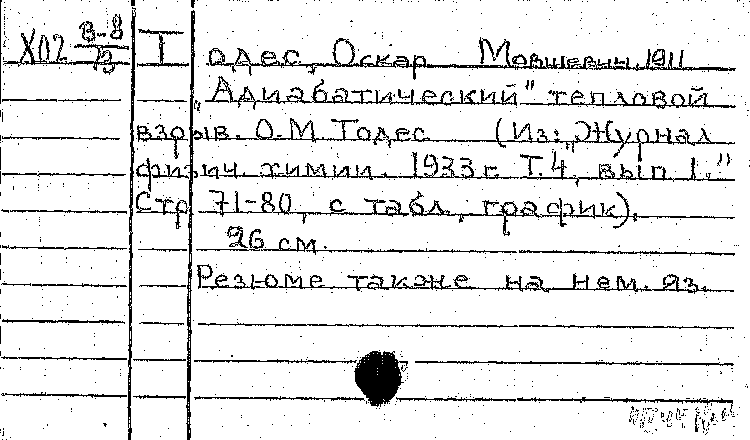 Х02 В-8/73 Тодес, Оскар Мовшевич. 1911
„Адиабатический" тепловой
взрыв. О.М. Тодес (Из: „Журнал
физич. химии. 1933 г. Т.4, вып 1."
Стр 71-80, с табл., график).
26 см.
Резюме также на нем. яз.